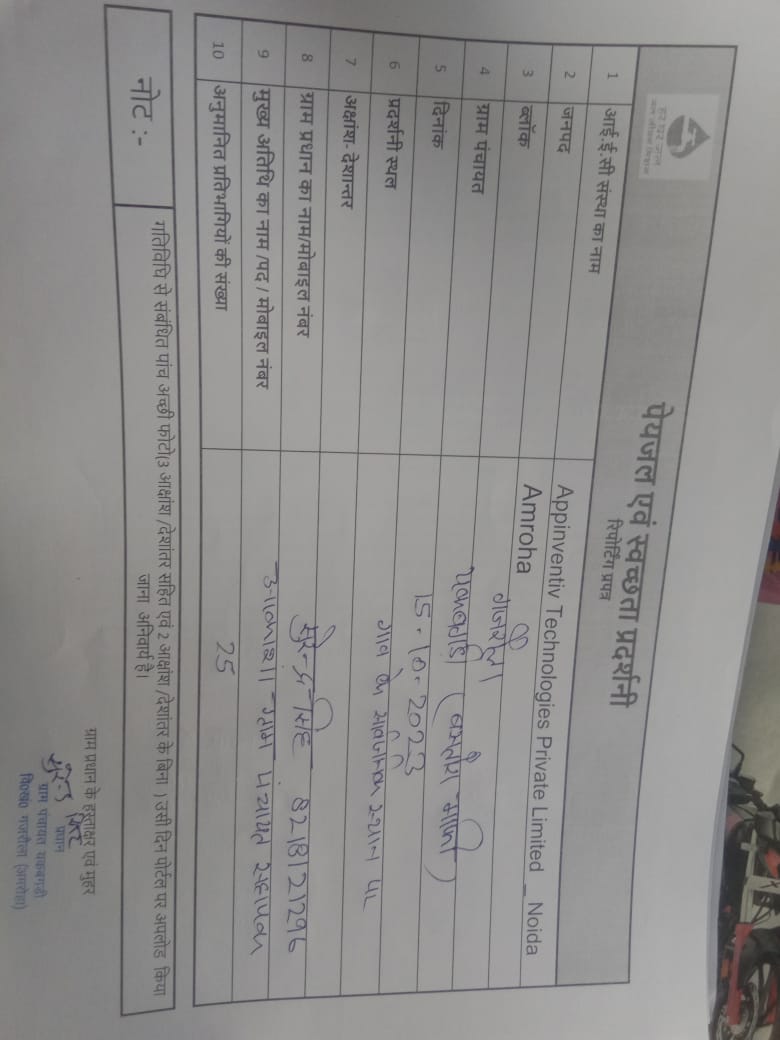 हर घर जल
जल जीवन मिशन
पेयजल एवं स्वच्छता प्रदर्शनी
रिपोर्टिंग प्रपत्र
1 आई.ई.सी संस्था का नाम Appinventiv Technologies Private Limited _ Noida
2 जनपद Amroha
3 ब्लॉक गजरौला
4 ग्राम पंचायत
5 दिनांक 15-10-2023
6 प्रदर्शनी स्थल गांव के सार्वजनिक स्थान पर
7 अक्षांश- देशान्तर
8 ग्राम प्रधान का नाम/मोबाइल नंबर सुरेन्द्र सिंह 8218121296
9 मुख्य अतिथि का नाम /पद / मोबाइल नंबर ग्राम पंचायत सहायक
10 अनुमानित प्रतिभागियों की संख्या 25
नोट :-
गतिविधि से संबंधित पांच अच्छी फोटो(3 आक्षांश /देशांतर सहित एवं 2 आक्षांश /देशांतर के बिना ) उसी दिन पोर्टल पर अपलोड किया
जाना अनिवार्य है।
ग्राम प्रधान के हस्ताक्षर एवं मुहर
प्रधान
ग्राम पंचायत
वि०ख० गजरौला (अमरोहा)